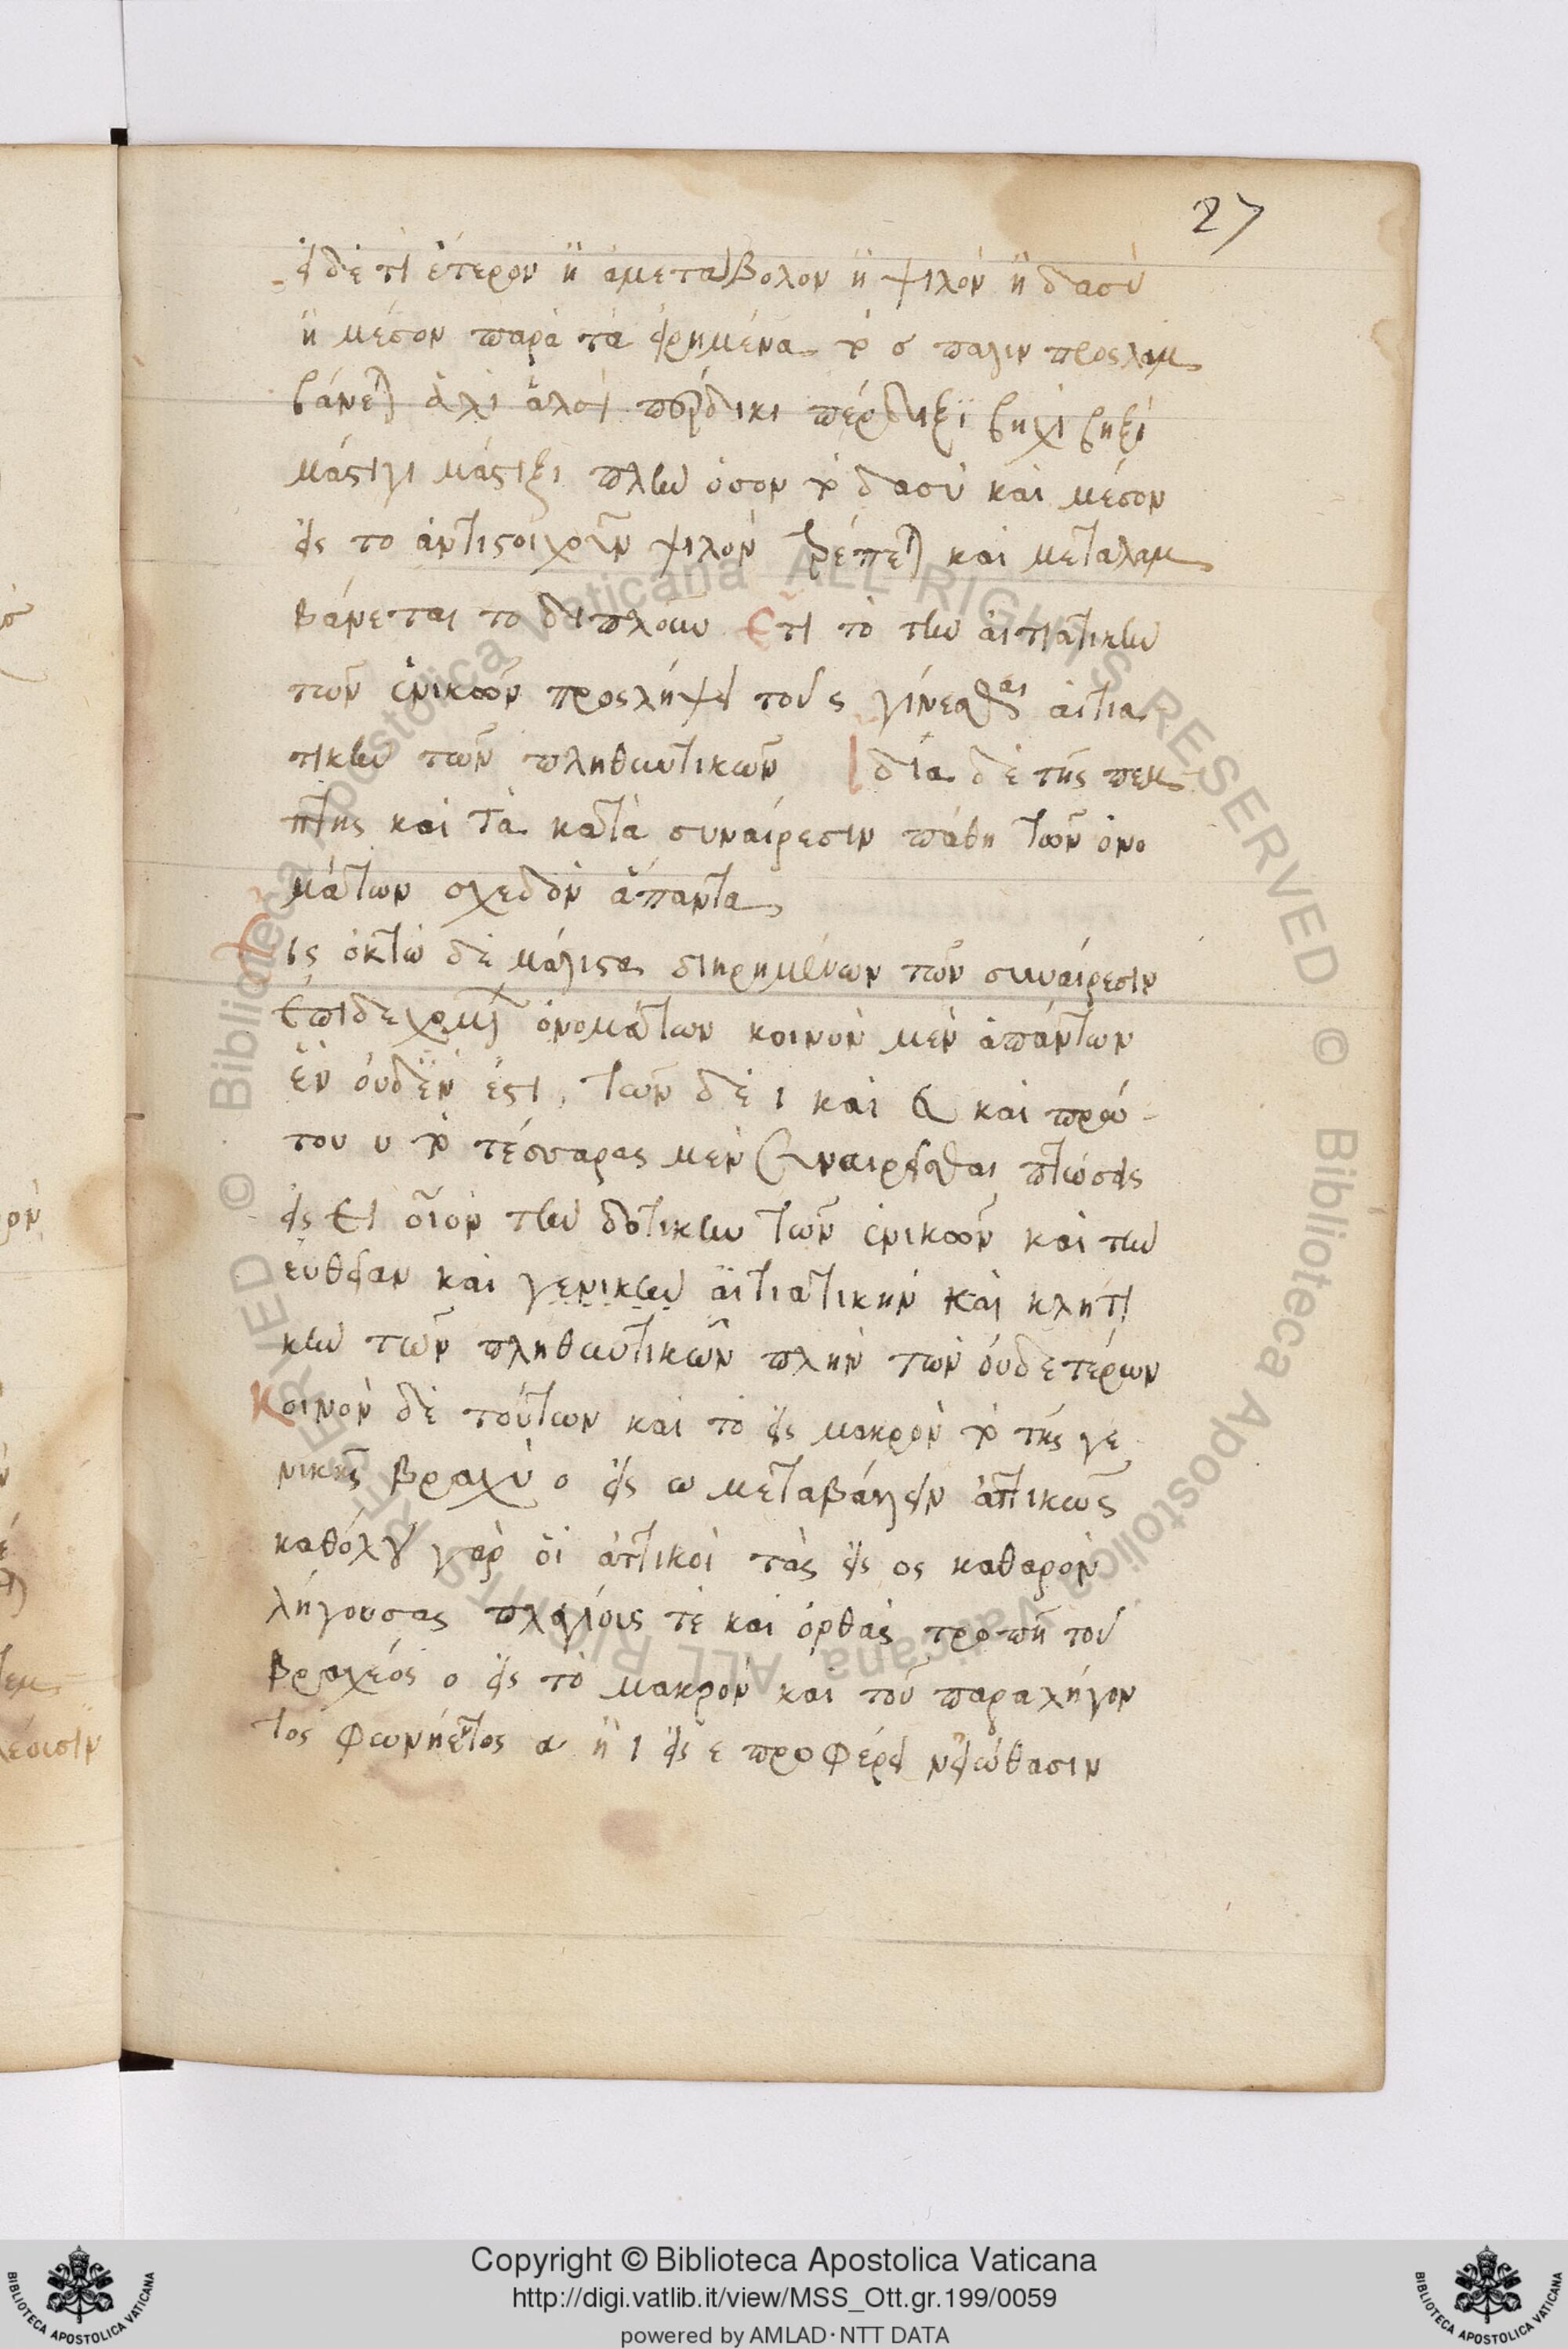 27
εἰ δέ τι ἕτερον ἢ ἀμετάβολον ἢ ψιλὸν ἢ δασὺ
ἢ μέσον παρὰ τὰ εἰρημένα τὸ σ πάλιν προσλαμ
βάνεται ἁλὶ ἁλσὶ πέρδικι πέρδιξι βηχὶ βηξὶ
μάστιγι μάστιξι πλὴν ὅσον τὸ δασὺ καὶ μέσον
εἰς τὸ ἀντιστοιχοῦν ψιλὸν τρέπεται καὶ μεταλαμ
βάνεται τὸ διπλοῦν Ἔτι τὸ τὴν αἰτιατικὴν
τῶν ἑνικῶν προσλήψει τοῦ ς γίνεσθαι αἰτια
τικὴν τῶν πληθυντικῶν Ἰδία δὲ τῆς πεμ
πτης καὶ τὰ κατὰ συναίρεσιν πάθη τῶν ὀνο
μάτων σχεδὸν ἅπαντα
Εἰς ὀκτὼ δὲ μάλιστα διηρημένων τῶν συναίρεσιν
ἐπιδεχομένων ὀνομάτων κοινὸν μὲν ἁπάντων
ἓν οὐδέν ἐστι, τῶν δὲ ι καὶ καὶ πρώ
του υ τὸ τέσσαρας μὲν συναιρεῖσθαι πτώσεις
εἰς ει οἷον τὴν δοτικὴν τῶν ἑνικῶν καὶ τὴν
εὐθεῖαν καὶ γενικὴν αἰτιατικὴν καὶ κλητι
κὴν τῶν πληθυντικῶν πλὴν τῶν οὐδετέρων
Κοινὸν δὲ τούτων καὶ τὸ εἰς μακρὸν τὸ τῆς γε
νικῆς βραχὺ ο εἰς ω μεταβάλλειν ἀττικῶς
καθόλου γὰρ οἱ ἀττικοὶ τὰς εἰς ος καθαρὸν
λήγουσας πλαγίους τε καὶ ὀρθὰς τροπῇ τοῦ
βραχέος ο εἰς τὸ μακρὸν καὶ τοῦ παραλήγον
τος φωνήεντος α ἢ ι εἰς ε προφέρειν εἰώθασιν
Copyright © Biblioteca Apostolica Vaticana
http://digi.vatlib.it/view/MSS_Ott.gr.199/0059
powered by AMLAD·NTT DATA